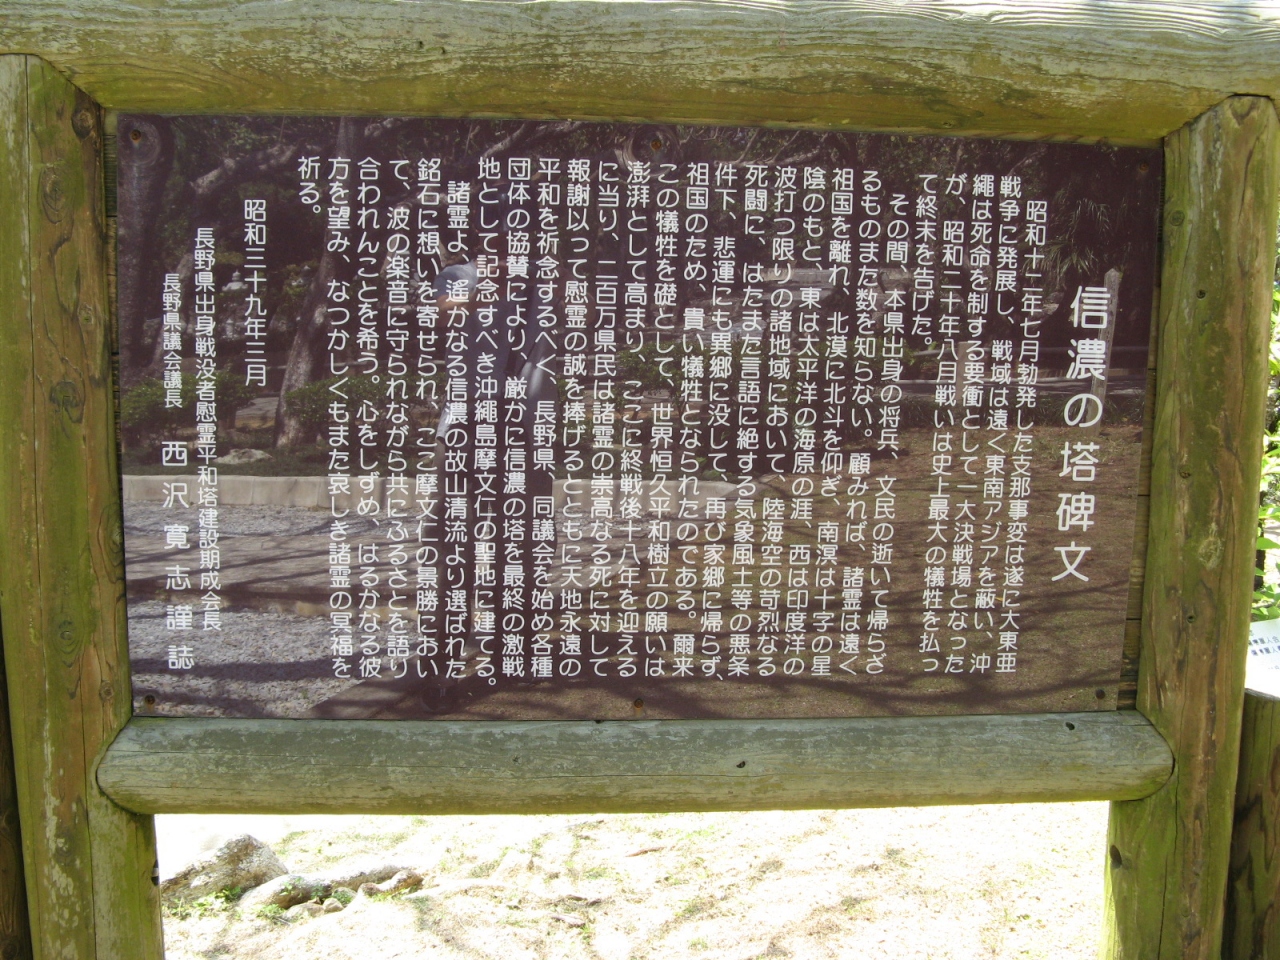 信濃の塔碑文
昭和十二年七月勃発した支那事変は遂に大東亜
戦争に発展し、戦域は遠く東南アジアを蔽い、沖
縄は死命を制する要衝として一大決戦場となった
が、昭和二十年八月戦いは史上最大の犠牲を払っ
て終末を告げた。
その間、本県出身の将兵、文民の逝いて帰らざ
るものまた数を知らない。顧みれば、諸霊は遠く
祖国を離れ、北漠に北斗を仰ぎ、南溟は十字の星
陰のもと、東は太平洋の海原の涯、西は印度洋の
波打つ限りの諸地域において、陸海空の苛烈なる
死闘に、はたまた言語に絶する気象風土等の悪条
件下、悲運にも異郷に没して、再び家郷に帰らず、
祖国のため、貴い犠牲となられたのである。爾来
この犠牲を礎として、世界恒久平和樹立の願いは
澎湃として高まり、ここに終戦後十八年を迎える
に当り、二百万県民は諸霊の崇高なる死に対して
報謝以って慰霊の誠を捧げるとともに天地永遠の
平和を祈念するべく、長野県、同議会を始め各種
団体の協賛により、厳かに信濃の塔を最終の激戦
地として記念すべき沖縄島摩文仁の聖地に建てる。
諸霊よ、遥かなる信濃の故山清流より選ばれた
銘石に想いを寄せられ、ここ摩文仁の景勝におい
て、波の楽音に守られながら共にふるさとを語り
合われんことを希う。心をしずめ、はるかなる彼
方を望み、なつかしくもまた哀しき諸霊の冥福を
祈る。
昭和三十九年三月
長野県出身戦没者慰霊平和塔建設期成会長
長野県議会議長 西沢寛志謹誌